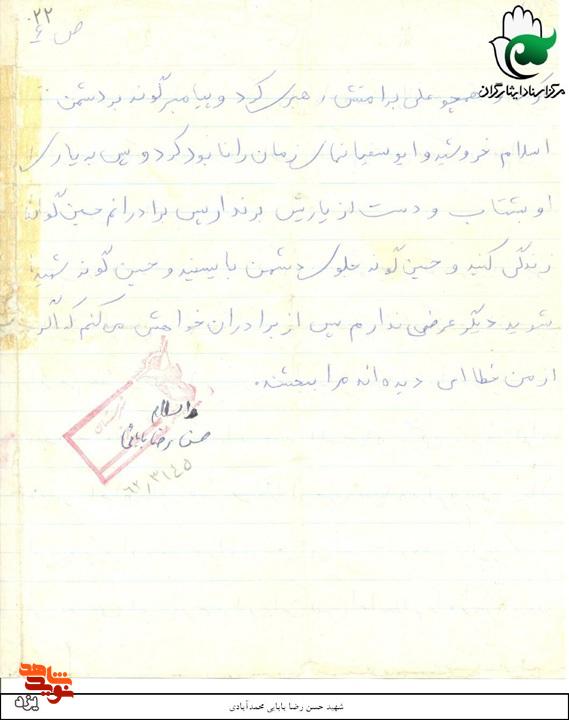 ۰۲۲
ص ۶
مرکز اسناد ایثارگران
همچو علی بر امتش رهبری کرد و پیامبرگونه بر دشمن
اسلام خروشید و ابوسفیانهای زمان را نابود کرد و پس به یاری
او بشتاب و دست از یاریش برندار پس برادرانم حسین گونه
زندگی کنید و حسین گونه جلوی دشمن بایستید و حسین گونه شهید
شوید دیگر عرضی ندارم پس از برادران خواهش می کنم که اگر
از من خطائی دیده اند مرا ببخشند.
والسلام
حسن رضا بابائی
۶۲/۳۱۴۵
نوید شاهد
یزد
شهید حسن رضا بابایی محمدآبادی